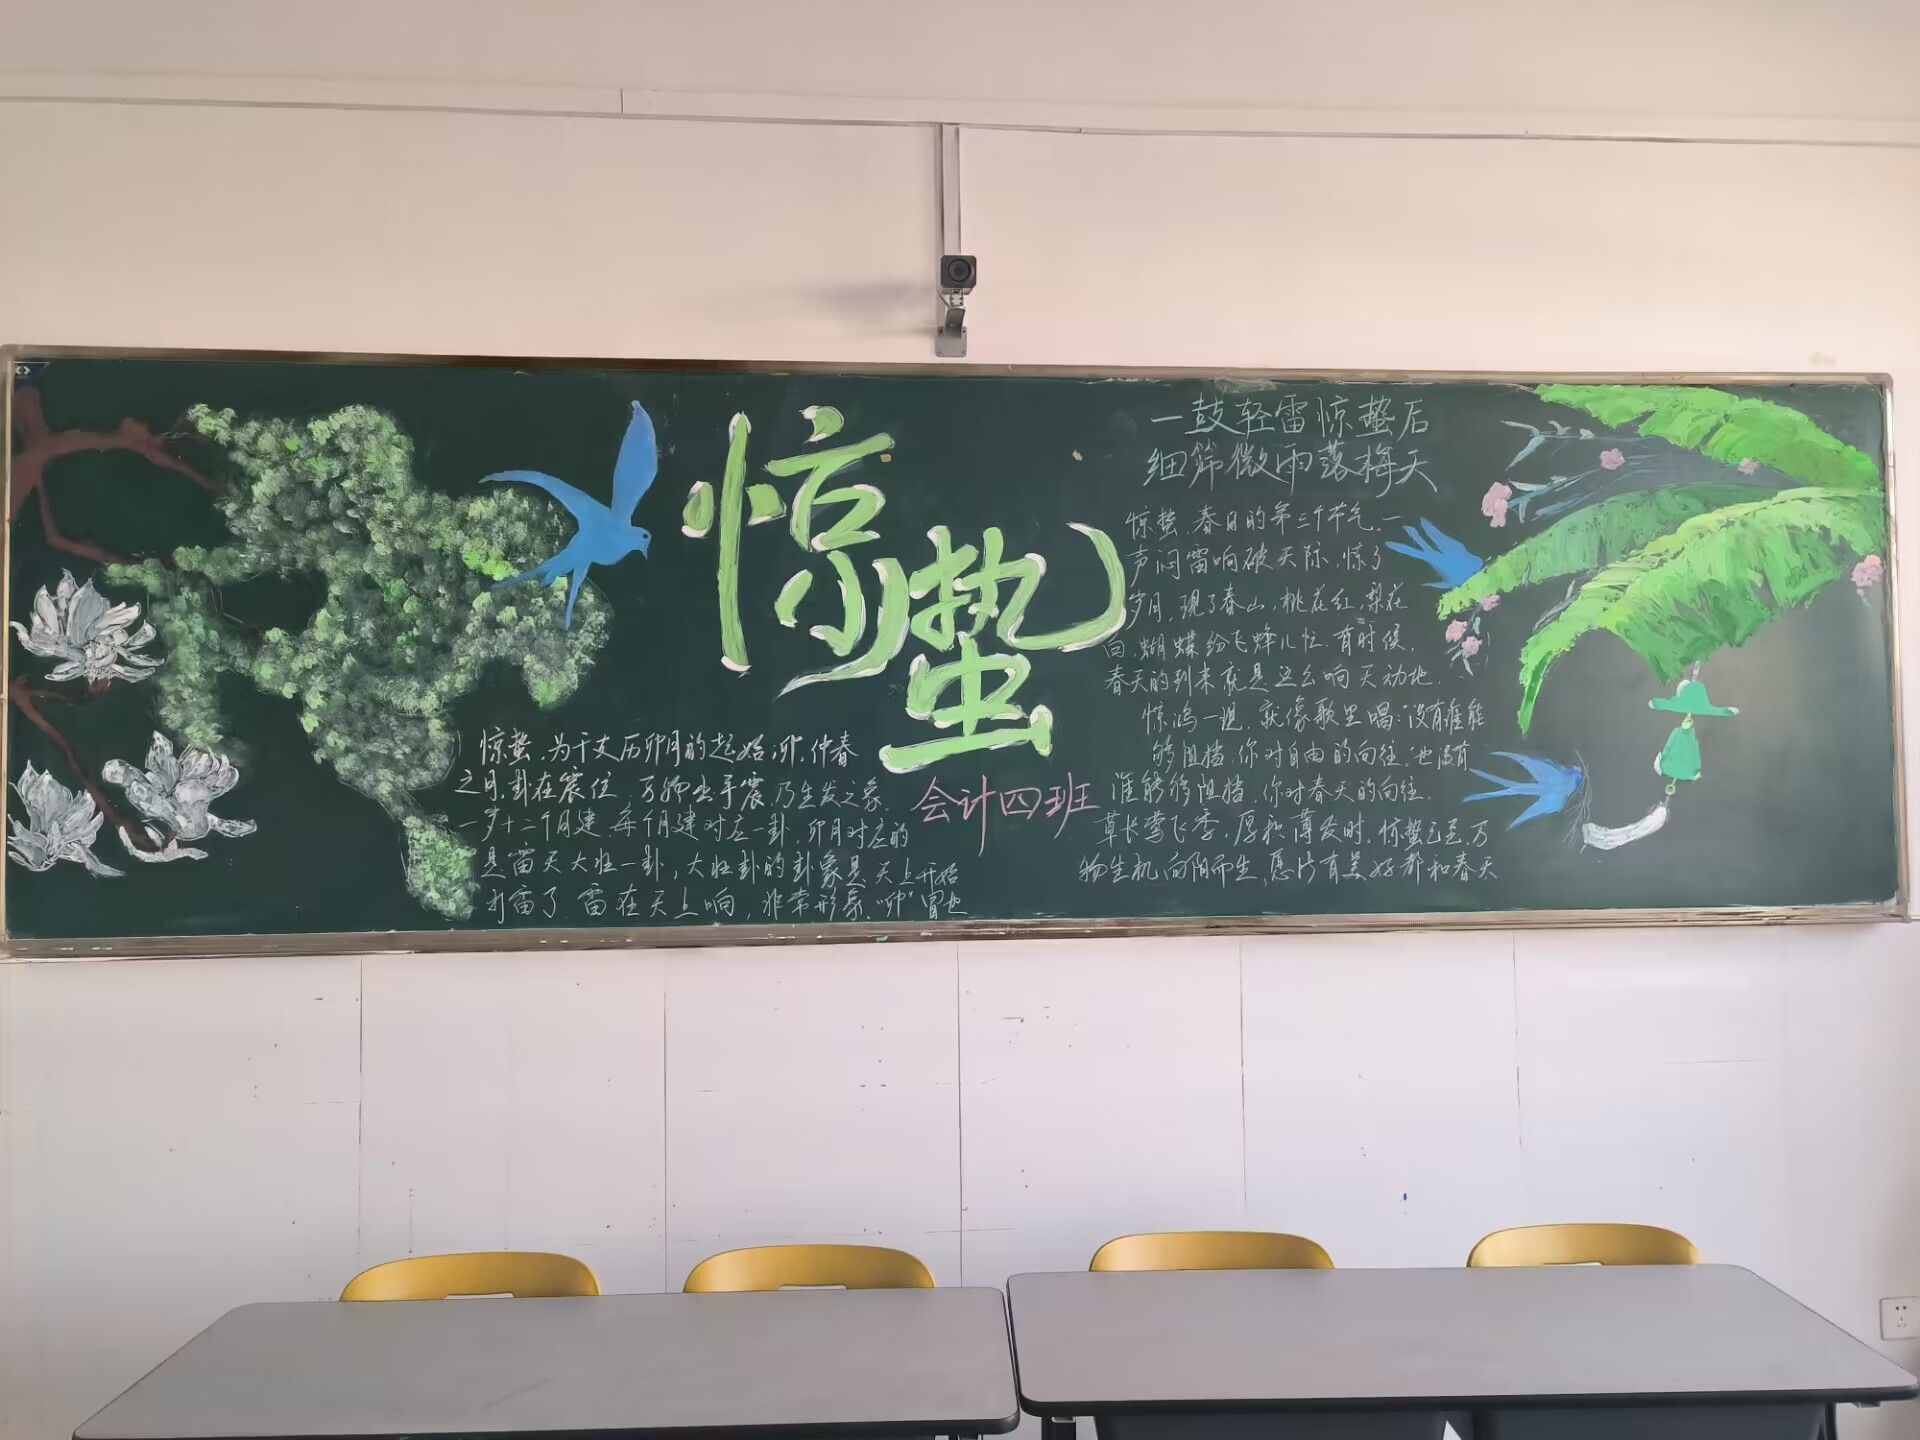 惊蛰
会计四班
惊蛰,为干支历卯月的起始,卯,仲春
之月,卦在震位,万物出乎震,乃生发之象.
一岁十二个月建,每个月建对应一卦,卯月对应的
是雷天大壮一卦,大壮卦的卦象是天上开始
打雷了.雷在天上响,非常形象,"卯"冒也
一鼓轻雷惊蛰后
细筛微雨落梅天
惊蛰,春日的第三个节气,一
声闷雷响破天际,惊了
岁月,现了春山,桃花红,梨花
白,蝴蝶纷飞蜂儿忙.有时候,
春天的到来就是这么响天动地.
惊鸿一过,就像歌里唱:没有谁能
够阻挡,你对自由的向往.也没有
谁能够阻挡,你对春天的向往.
草长莺飞季,厚积薄发时,惊蛰已至,万
物生机,向阳而生,愿所有美好都和春天